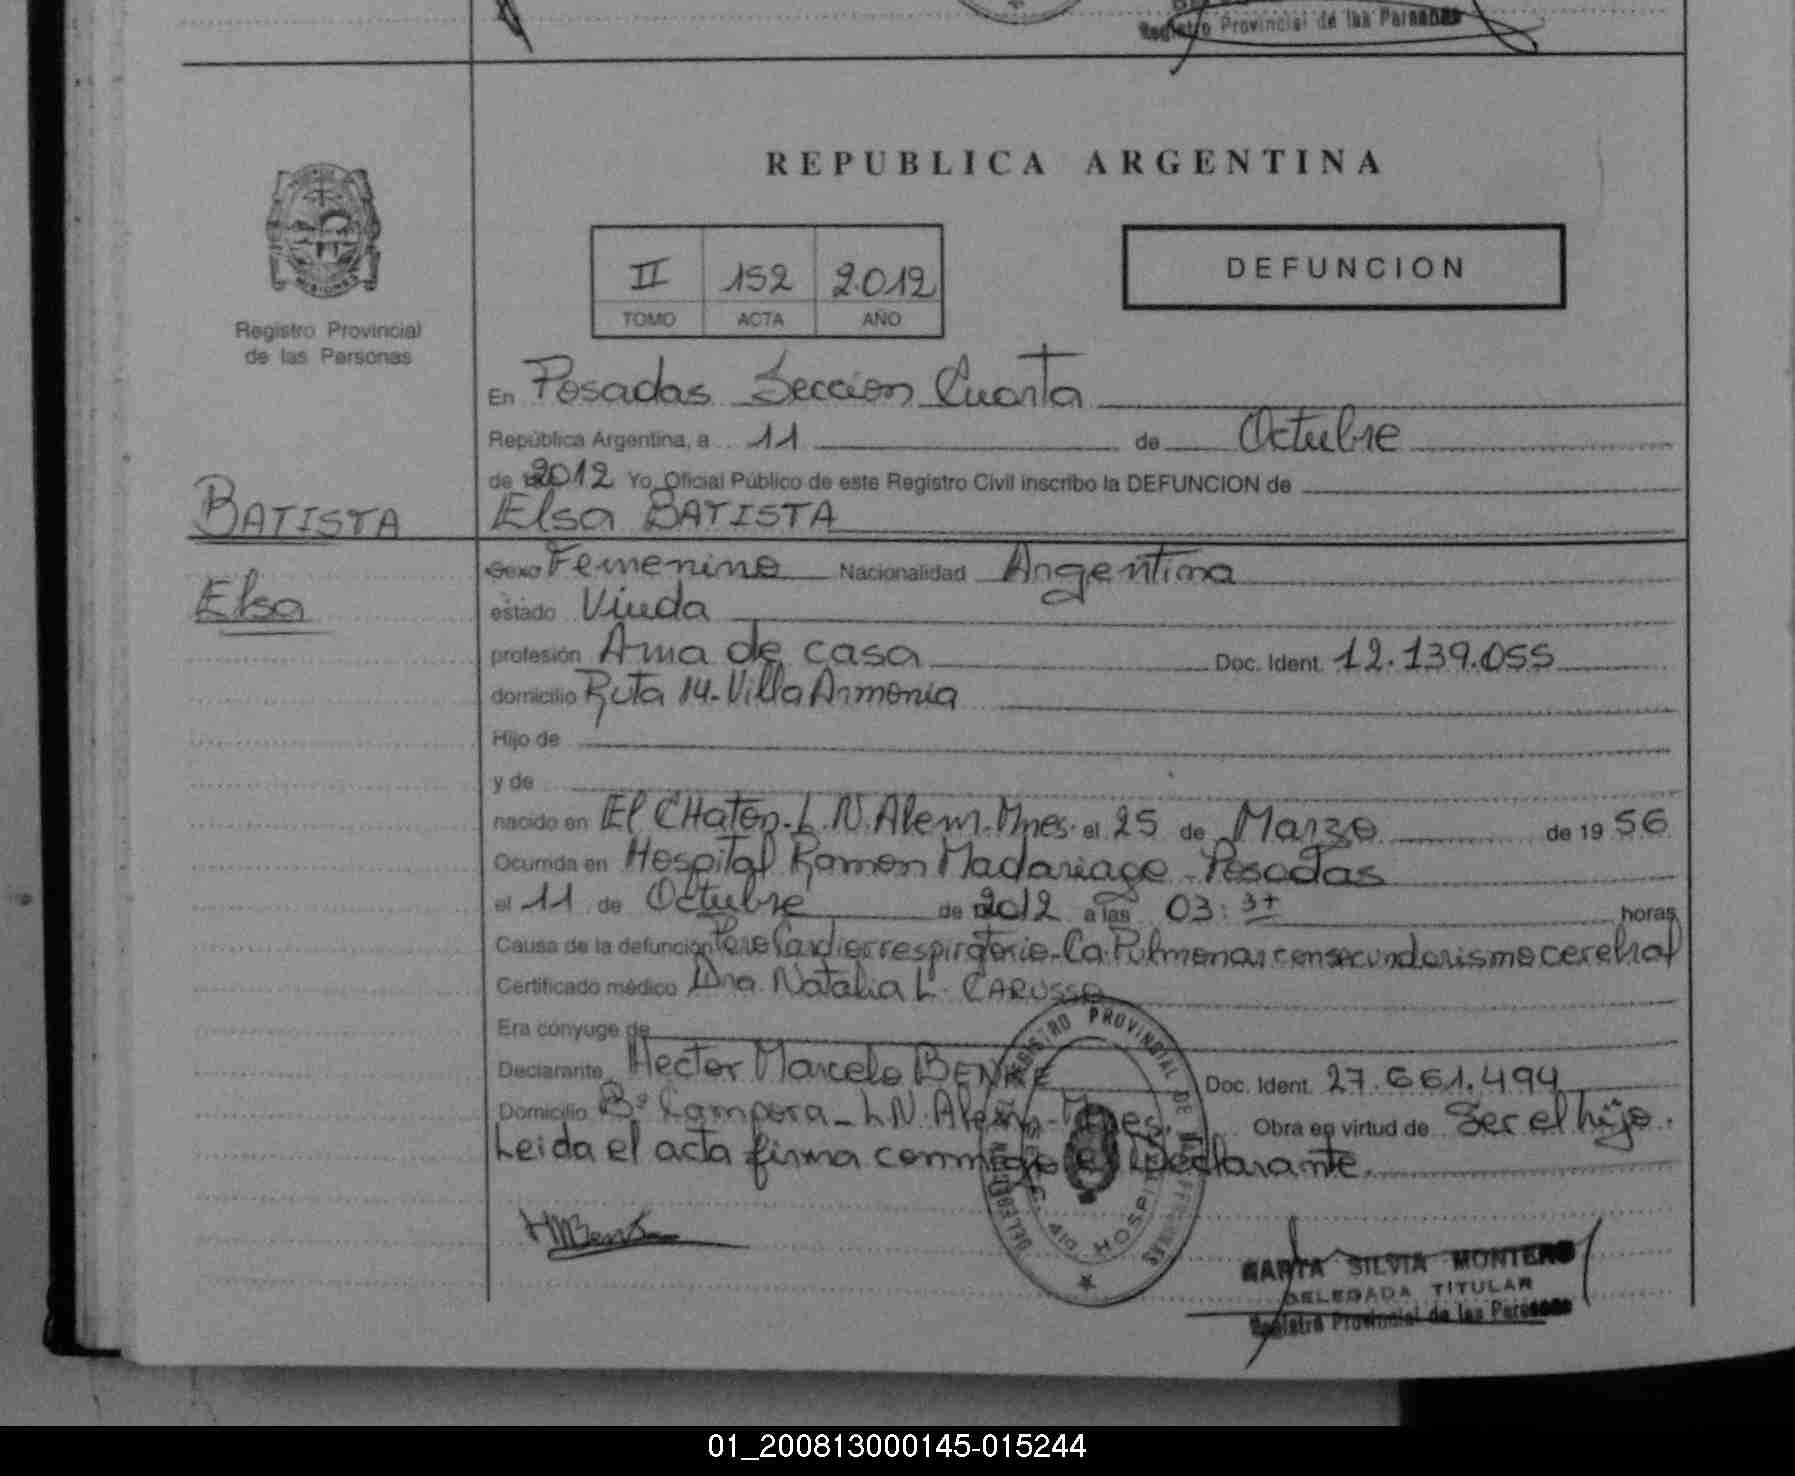 Registro Provincial de las Personas
REPUBLICA ARGENTINA
II 152 2.012
TOMO ACTA AÑO
DEFUNCION
MISIONES
Registro Provincial
de las Personas
En Posadas Seccion Cuarta
República Argentina, a 11 de Octubre
de 2012 Yo, Oficial Público de este Registro Civil inscribo la DEFUNCION de
BATISTA
Elsa BATISTA
Elsa
Sexo Femenino Nacionalidad Argentina
estado Viuda
profesión Ama de casa Doc. Ident. 12.139.055
domicilio Ruta 14-Villa Armonia
Hijo de
y de
nacido en El CHaton-L.N.Alem-Mnes. el 25 de Marzo de 19 56
Ocurrida en Hospital Ramon Madariaga - Posadas
el 11 de Octubre de 2012 a las 03: horas
Causa de la defunción Paro Cardiorrespiratorio-Ca.Pulmonar con secundarismo cerebral
Certificado médico Dra. Natalia L. CARUSSO
Era cónyuge de
Declarante Hector Marcelo BENKE Doc. Ident. 27.661.494
Domicilio Bº Campora-LN.Alem-Mnes. Obra en virtud de Ser el hijo.
Leida el acta firma conmigo el Declarante.
REGISTRO PROVINCIAL DE LAS
HOSPI
MARTA SILVIA MONTERO
DELEGADA TITULAR
Registro Provincial de las Personas
01_200813000145-015244